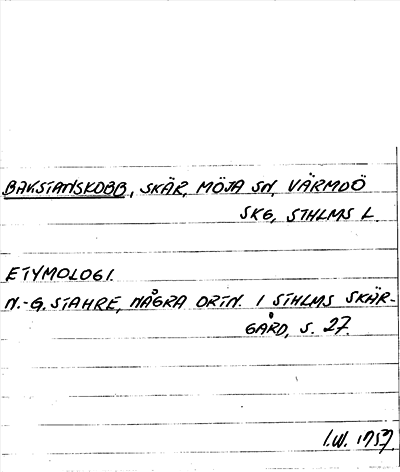 BAKSTANSKOBB, SKÄR, MÖJA SN, VÄRMDÖ
SKG, STHLMS L.
ETYMOLOGI.
N.-G. STAHRE, NÅGRA ORTN. I STHLMS SKÄR-
GÅRD, S. 27.
I.W. 1757